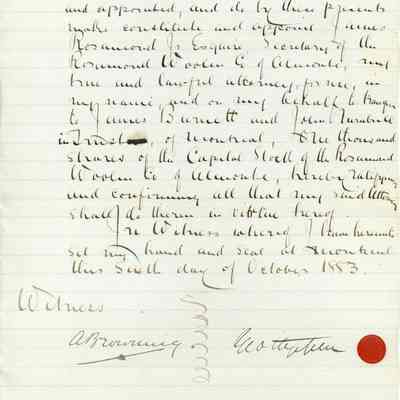 and appointed, and do by these presents
make constitute and appoint James
Rosamond Jr Esquire, Secretary of the
Rosamond Woolen Co of Almonte, my
true and lawful attorney, for me, in
my name, and on my behalf to transfer
to James Burnett and John Turnbull
in Trust, of Montreal, One thousand
shares of the Capital Stock of the Rosamond
Woolen Co of Almonte, hereby ratifying
and confirming all that my said Attorney
shall do therein in virtue hereof.
In Witness whereof I have hereunto
set my hand and seal at Montreal
this Sixth day of October 1883.
Witness
A Browning
Geo Stephen